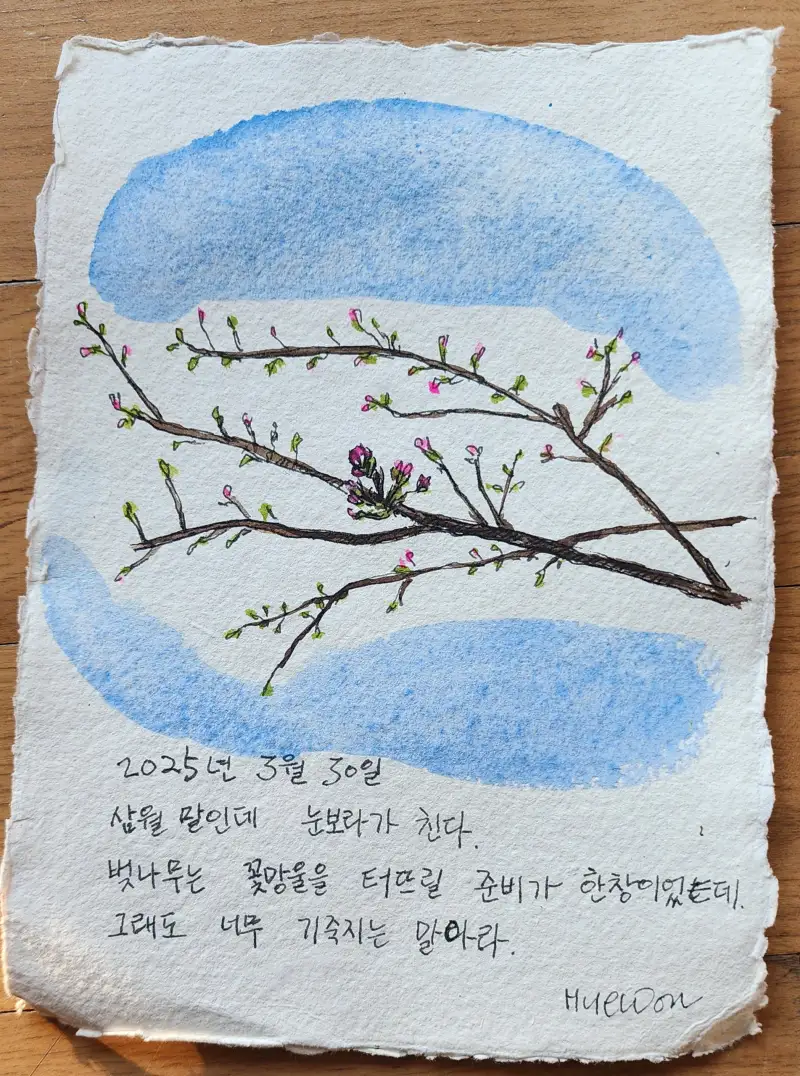 2025년 3월 30일
삼월 말인데 눈보라가 친다.
벚나무는 꽃망울을 터뜨릴 준비가 한창이었는데.
그래도 너무 기죽지는 말아라.
Hyewon